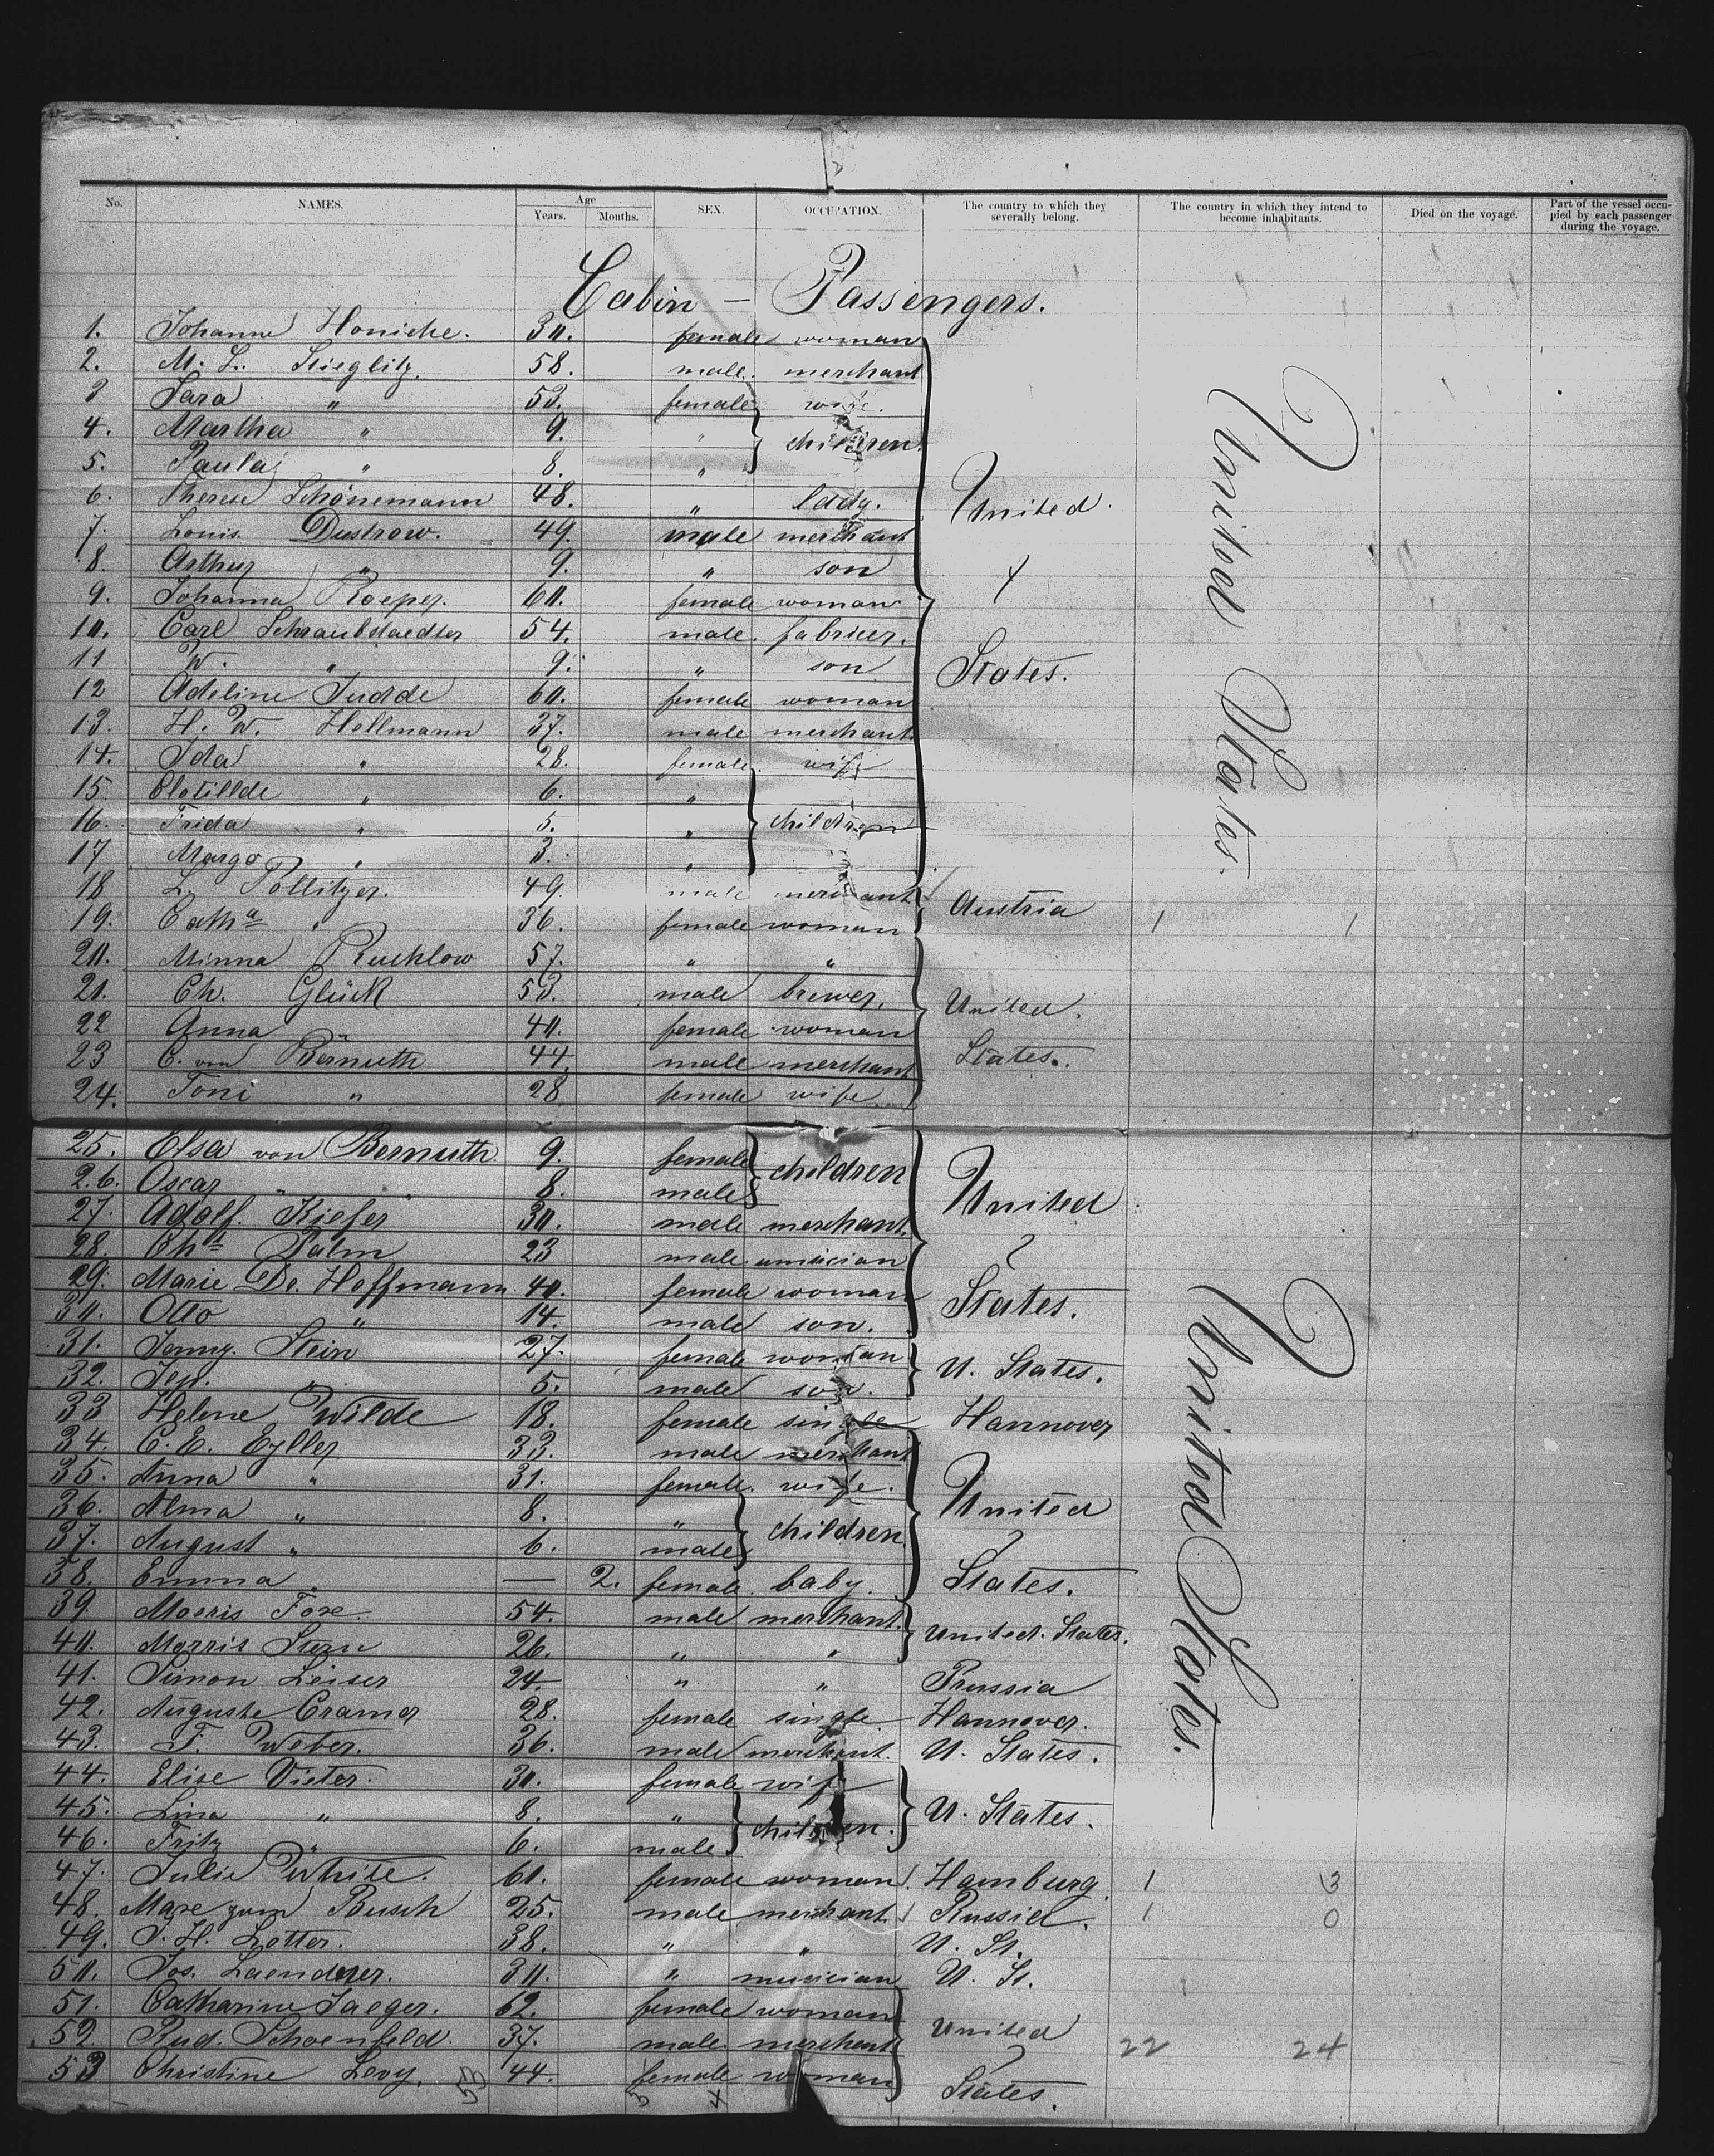 No. NAMES. Age Years. Months. SEX. OCCUPATION. The country to which they severally belong. The country in which they intend to become inhabitants. Died on the voyage. Part of the vessel occupied by each passenger during the voyage.
Cabin – Passengers.
1. Johanne Honicke. 30. female woman
2. M. L. Stieglitz. 58. male. merchant
3 Sara " 53. female wife.
4. Martha " 9. " children.
5. Paula " 8. "
6. Therese Schönemann 48. " lady. United
7. Louis Dustrow. 49. male merchant
8. Arthur " 9. " son
9. Johanna Roeper. 60. female woman
10. Carl Schraubstaedter 54. male. fabricer.
11 W. " 9. " son States.
12 Adeline Judde 60. female woman
13. H. W. Hellmann 37. male merchant.
14. Ida " 28. female. wife
15 Clotillde " 6. "
16. Frida " 5. " children
17 Margo " 3. "
United States.
18 L. Pollitzer. 49. male merchant Austria
19. Cath a " 36. female woman 1 1
20. Minna Ruchlow 57. " "
21. Ch. Glück 53. male brewer. United
22 Anna " 40. female woman
23 C. von Bernuth 44. male merchant States.
24. Toni " 28 female wife
25. Elsa von Bernuth. 9. female children
26. Oscar " " 8. male United
27. Adolf. Kiefer 30. male merchant.
28. Chs Palm 23 male. musician
29. Marie Dr. Hoffmann 40. female woman
30. Otto " 14. male son. States.
31. Jenny. Stein 27. female woman U. States.
32. Jep. " 5. male son.
33 Helene Wilde 18. female single Hannover
34. C. E. Eyller 33. male merchant
35. Anna " 31. female. wife.
36. Alma " 8. " children United
37. August " 6. male
38. Emma " — 2. female. baby. States.
39. Moeris Foxe. 54. male merchant. United. States.
40. Morris Stern 26. " "
41. Simon Leiser 24. " " Prussia
42. Auguste Cramer 28. female single Hannover.
43. F. Weber. 36. male merchant. U. States.
44. Elise Vietor. 30. female wife
45. Lina " 8. " children. U. States.
46. Fritz " 6. male
United States.
47. Julie White. 61. female woman. Hamburg. 1 3
48. Maxe zum Busch 25. male merchant Russia. 1 0
49. S. H. Lotter. 38. " " U. St.
50. Jos. Laenderer. 30. " musician U. St.
51. Catharine Jaeger. 62. female woman
52. Rud. Schoenfeld. 37. male. merchant United 22 24
53 Christine Levy. 44. female woman States.
53 3 4